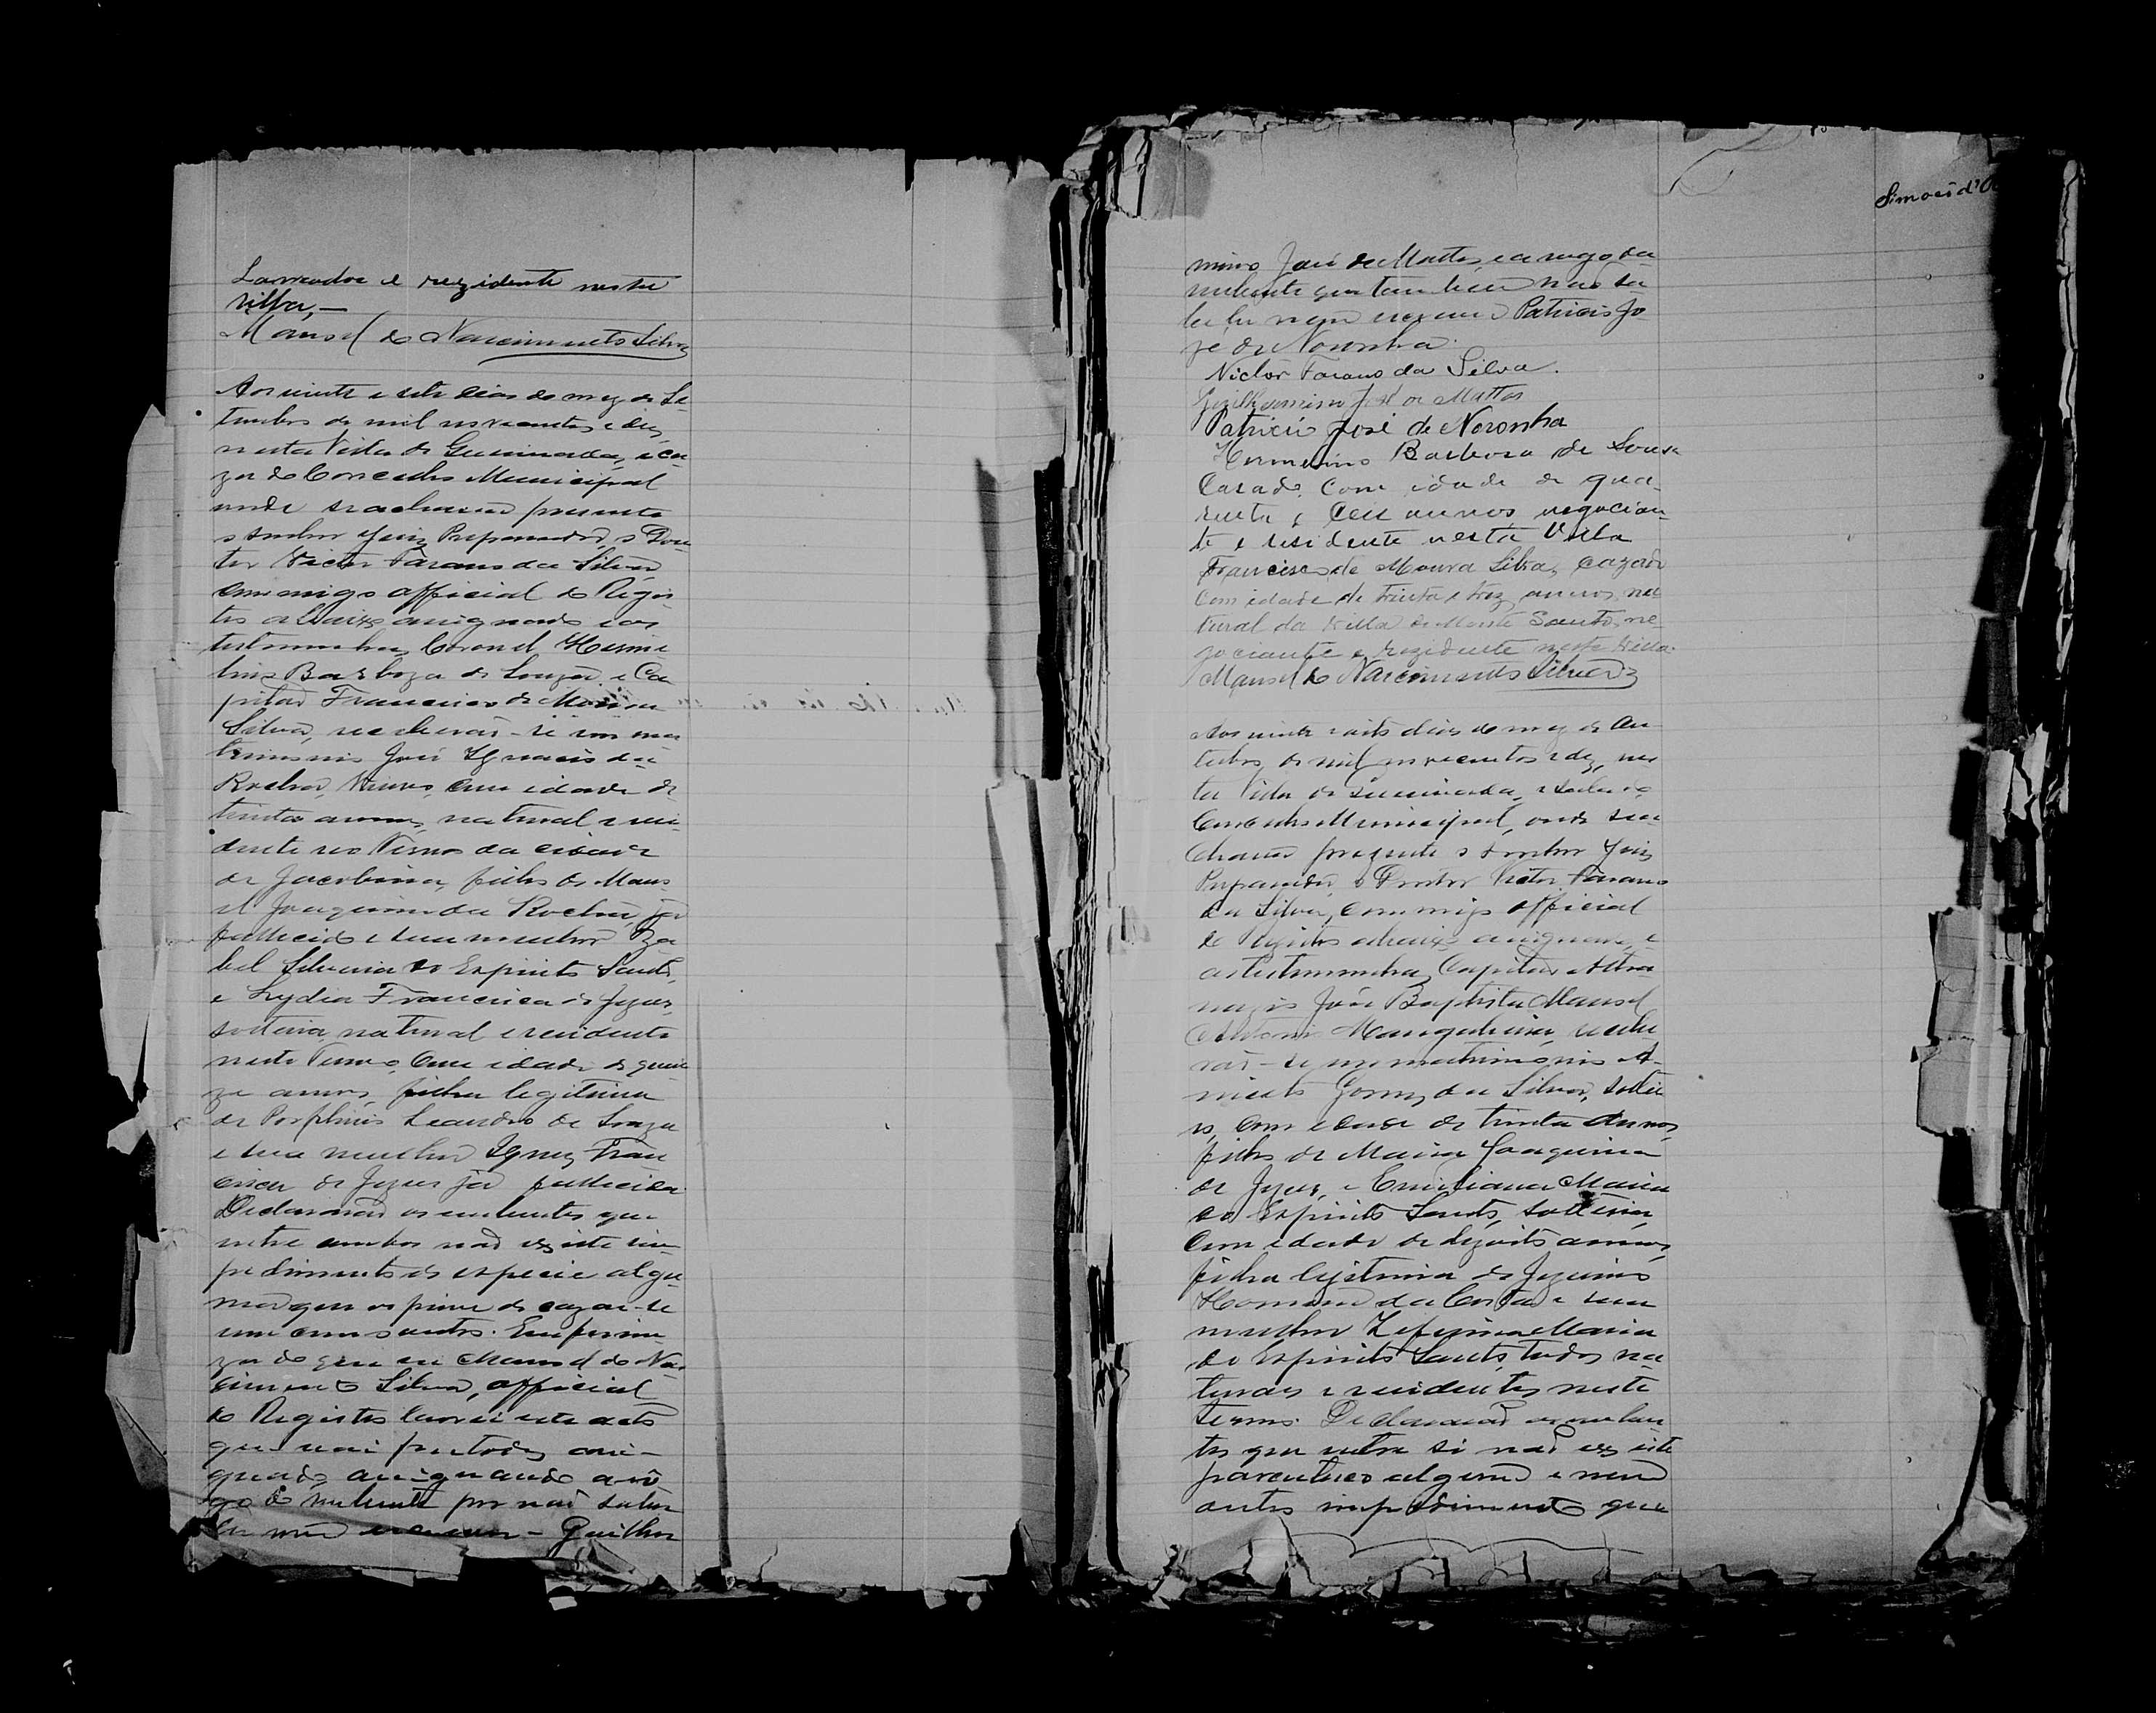 Lavrador e rezidente nesta
villa, —
Manoel do Nascimento Silva
Aos vinte e sete dias do mez de Se-
tembro de mil novecentos e dez,
nesta Villa de Queimadas, e ca-
za do Concelho Municipal
onde se achavão presente
o senhor Juiz Preparador, o Dou-
tor Victor Farano da Silva,
commigo official do Regis-
tro abaixo assignado e as
testemunhas, Coronel Herme-
lino Barboza de Souza e Ca-
pitão Francisco de Moura
Silva, receberão-se em ma-
trimonio José Ignacio da
Rocha, Viuvo, com idade de
trinta annos, natural e resi-
dente no Termo da cidade
de Jacobina, filho de Mano-
el Joaquim da Rocha, já
fallecido e sua mulher Iza-
bel Silveria do Espirito Santo,
e Lydia Francisca de Jezus,
solteira, natural e residente
neste Termo, com idade de quin-
ze annos, filha legitima
de Porphirio Leandro de Souza
e sua mulher Ignez Fran-
cisca de Jezus já fallecida.
Declararão os nubentes que
entre ambos não existe im-
pedimento de especie algu-
ma que os prive de cazar-se
um com o outro. Em firme-
za do que eu Manoel do Nas-
cimento Silva, official
do Registro lavrei este acto
que vai por todos assi-
gnado, assignando a ro-
go do nubente por não saber
ler nem escrever - Guilher-
mino José de Mattos, e a rogo da
nubente que tambem não sa-
be ler nem escrever Patricio Jo-
ze de Noronha.
Victor Farano da Silva.
Guilhermino José de Mattos
Patricio José de Noronha
Hermelino Barbosa de Sousa
Casado, com idade de qua-
renta e annos negocian-
te e residente nesta Villa
Francisco de Moura Silva, cazado
com idade de trinta e trez annos, na-
tural da Villa de Monte Santo, ne-
gociante e rezidente nesta Villa.
Manoel do Nascimento Silva
Aos vinte e oito dias do mez de Ou-
tubro de mil novecentos e dez, nes-
ta Villa de Queimadas, e salla do
Concelho Municipal, onde se a-
chava prezente o senhor Juiz
Preparador, o Doutor Victor Farano
da Silva, commigo official
do Registro abaixo assignado, e
as testemunhas, Capitão Atha-
nazio João Baptista Manoel
Antonio Mangabeira, recebe-
rão-se em matrimonio A-
niceto Gomes da Silva, soltei-
ro, com idade de trinta annos,
filho de Maria Joaquina
de Jezus, e Emiliana Maria
do Espirito Santo, solteira,
com idade de dezoito annos,
filha legitima de Jezuino
da Costa e sua
mulher Zeferina Maria
do Espirito Santo, todos na-
turaes e residentes neste
termo. Declararão os nuben-
tes que entre si não existe
parentesco algum e nem
outro impedimento que
Simões d'O